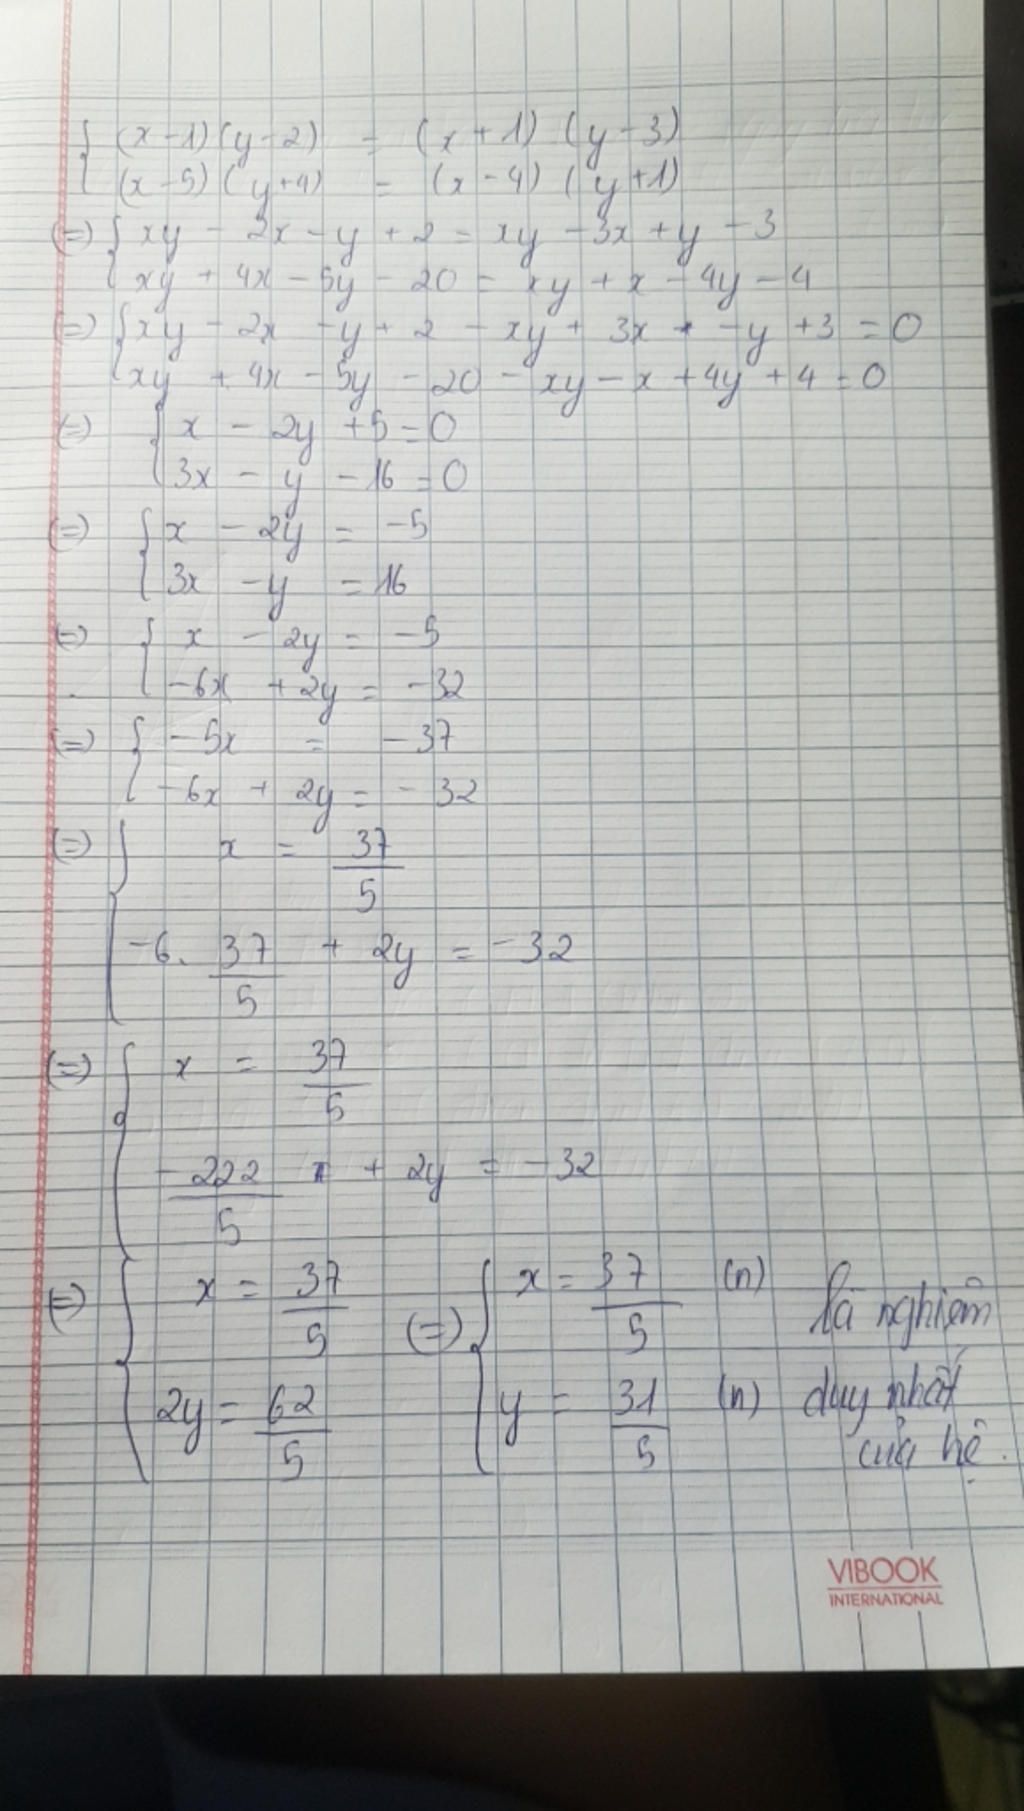 { (x-1)(y-2) = (x+1)(y-3)
(x-5)(y+4) = (x-4)(y+1)
(=) { xy - 2x - y + 2 = xy - 3x + y - 3
xy + 4x - 5y - 20 = xy + x - 4y - 4
(=) { xy - 2x - y + 2 - xy + 3x - y + 3 = 0
xy + 4x - 5y - 20 - xy - x + 4y + 4 = 0
(=) { x - 2y + 5 = 0
3x - y - 16 = 0
(=) { x - 2y = -5
3x - y = 16
(=) { x - 2y = -5
-6x + 2y = -32
(=) { -5x = -37
-6x + 2y = -32
(=) { x = 37/5
-6. 37/5 + 2y = -32
(=) { x = 37/5
-222/5 + 2y = -32
(=) { x = 37/5 (=) { x = 37/5 (n) là nghiệm
2y = 62/5 y = 31/5 (n) duy nhất
của hệ.
VIBOOK
INTERNATIONAL